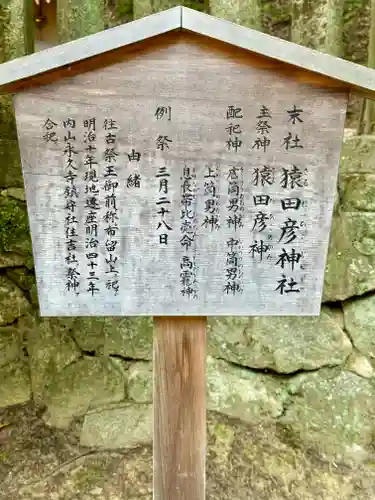 末社 猿田彦神社
主祭神 猿田彦神
配祀神 底筒男神 中筒男神
上筒男神
息長帯比売命 高龗神
例祭 三月二十八日
由緒
往古祭王御前称布留山上ニ祀
明治十年現地遷座明治四十三年
内山永久寺鎮守社住吉社祭神ヲ
合祀